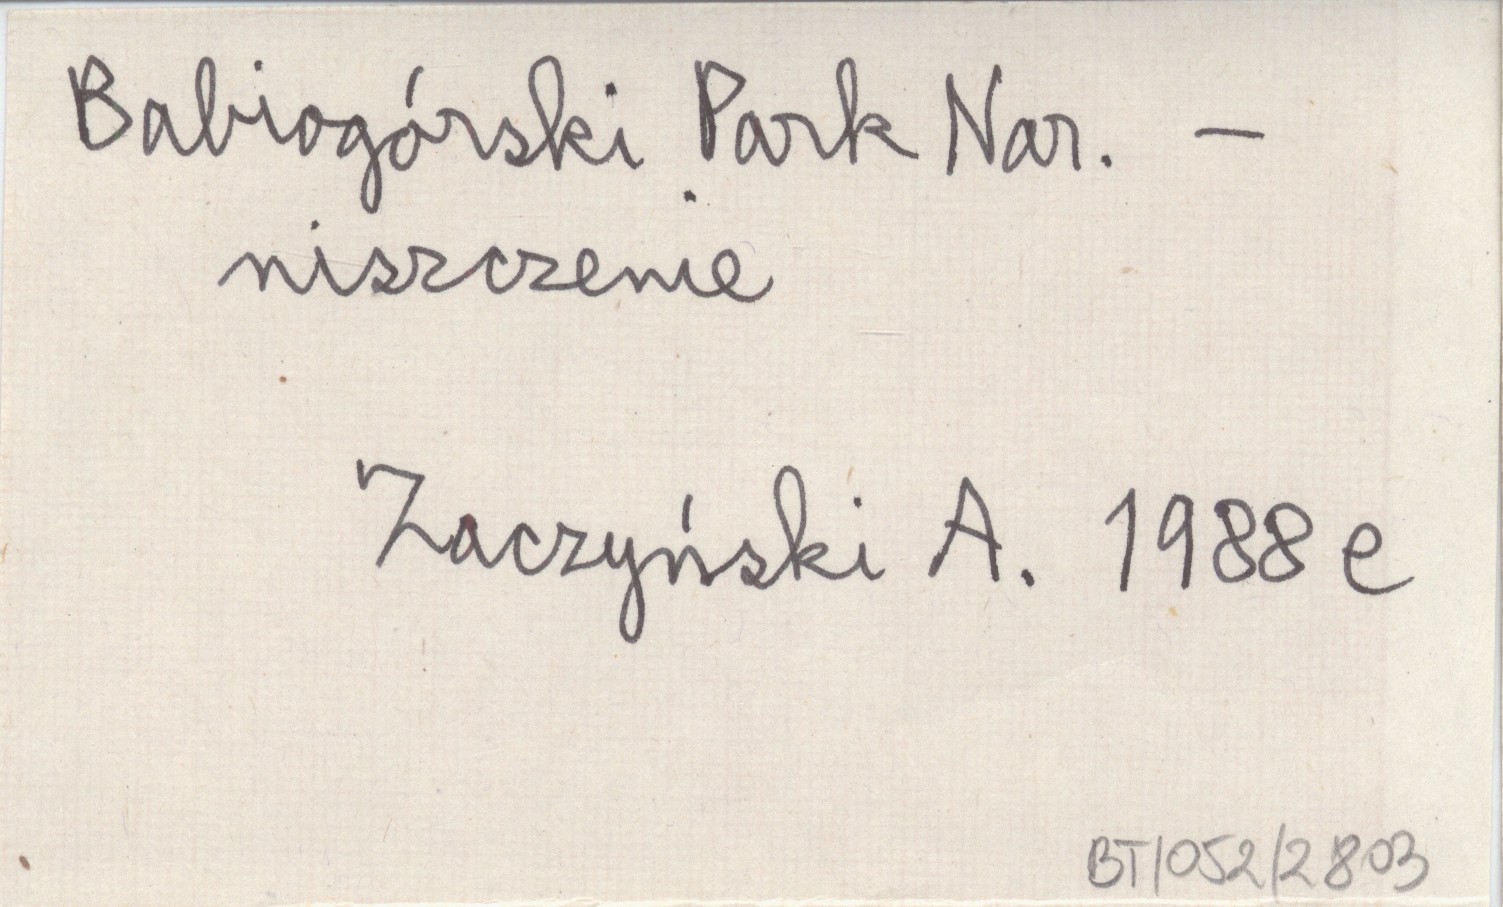 Babiogórski Park Nar. –
niszczenie
Zaczyński A. 1988 e
BT/052/2803